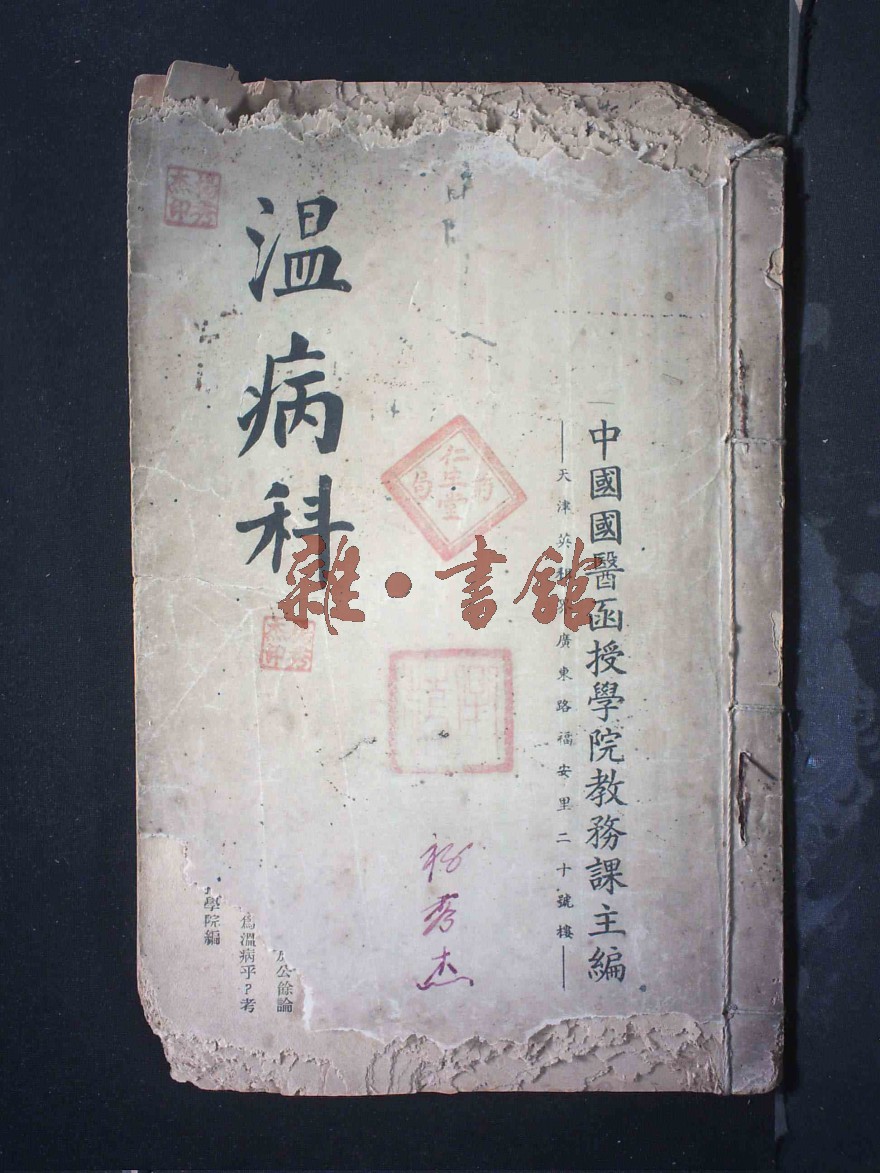 中國國醫函授學院教務課主編
天津英租界廣東路福安里二十號樓
溫病科
仁生堂
雜·書館
秀杰
公餘論
爲溫病乎?考
學院編